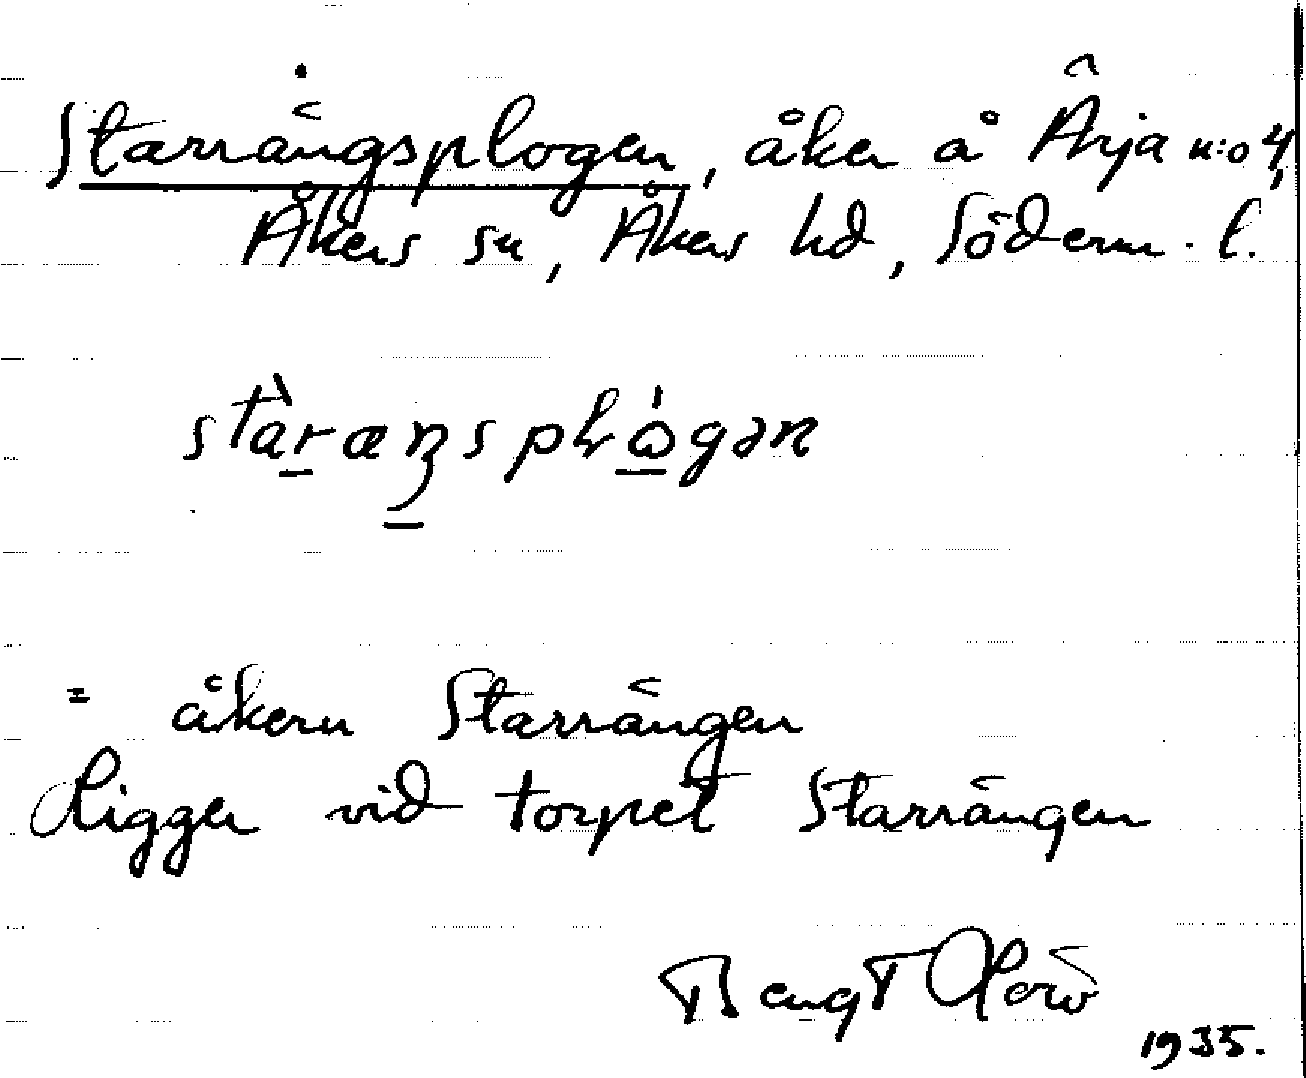 Starrängsplogen, åker å Ärja n:o 4,
Åkers sn, Åkers hd, Söderm. l.
stàræŋsplógən
= åkern Starrängen
Ligger vid torpet Starrängen
Bengt
1935.